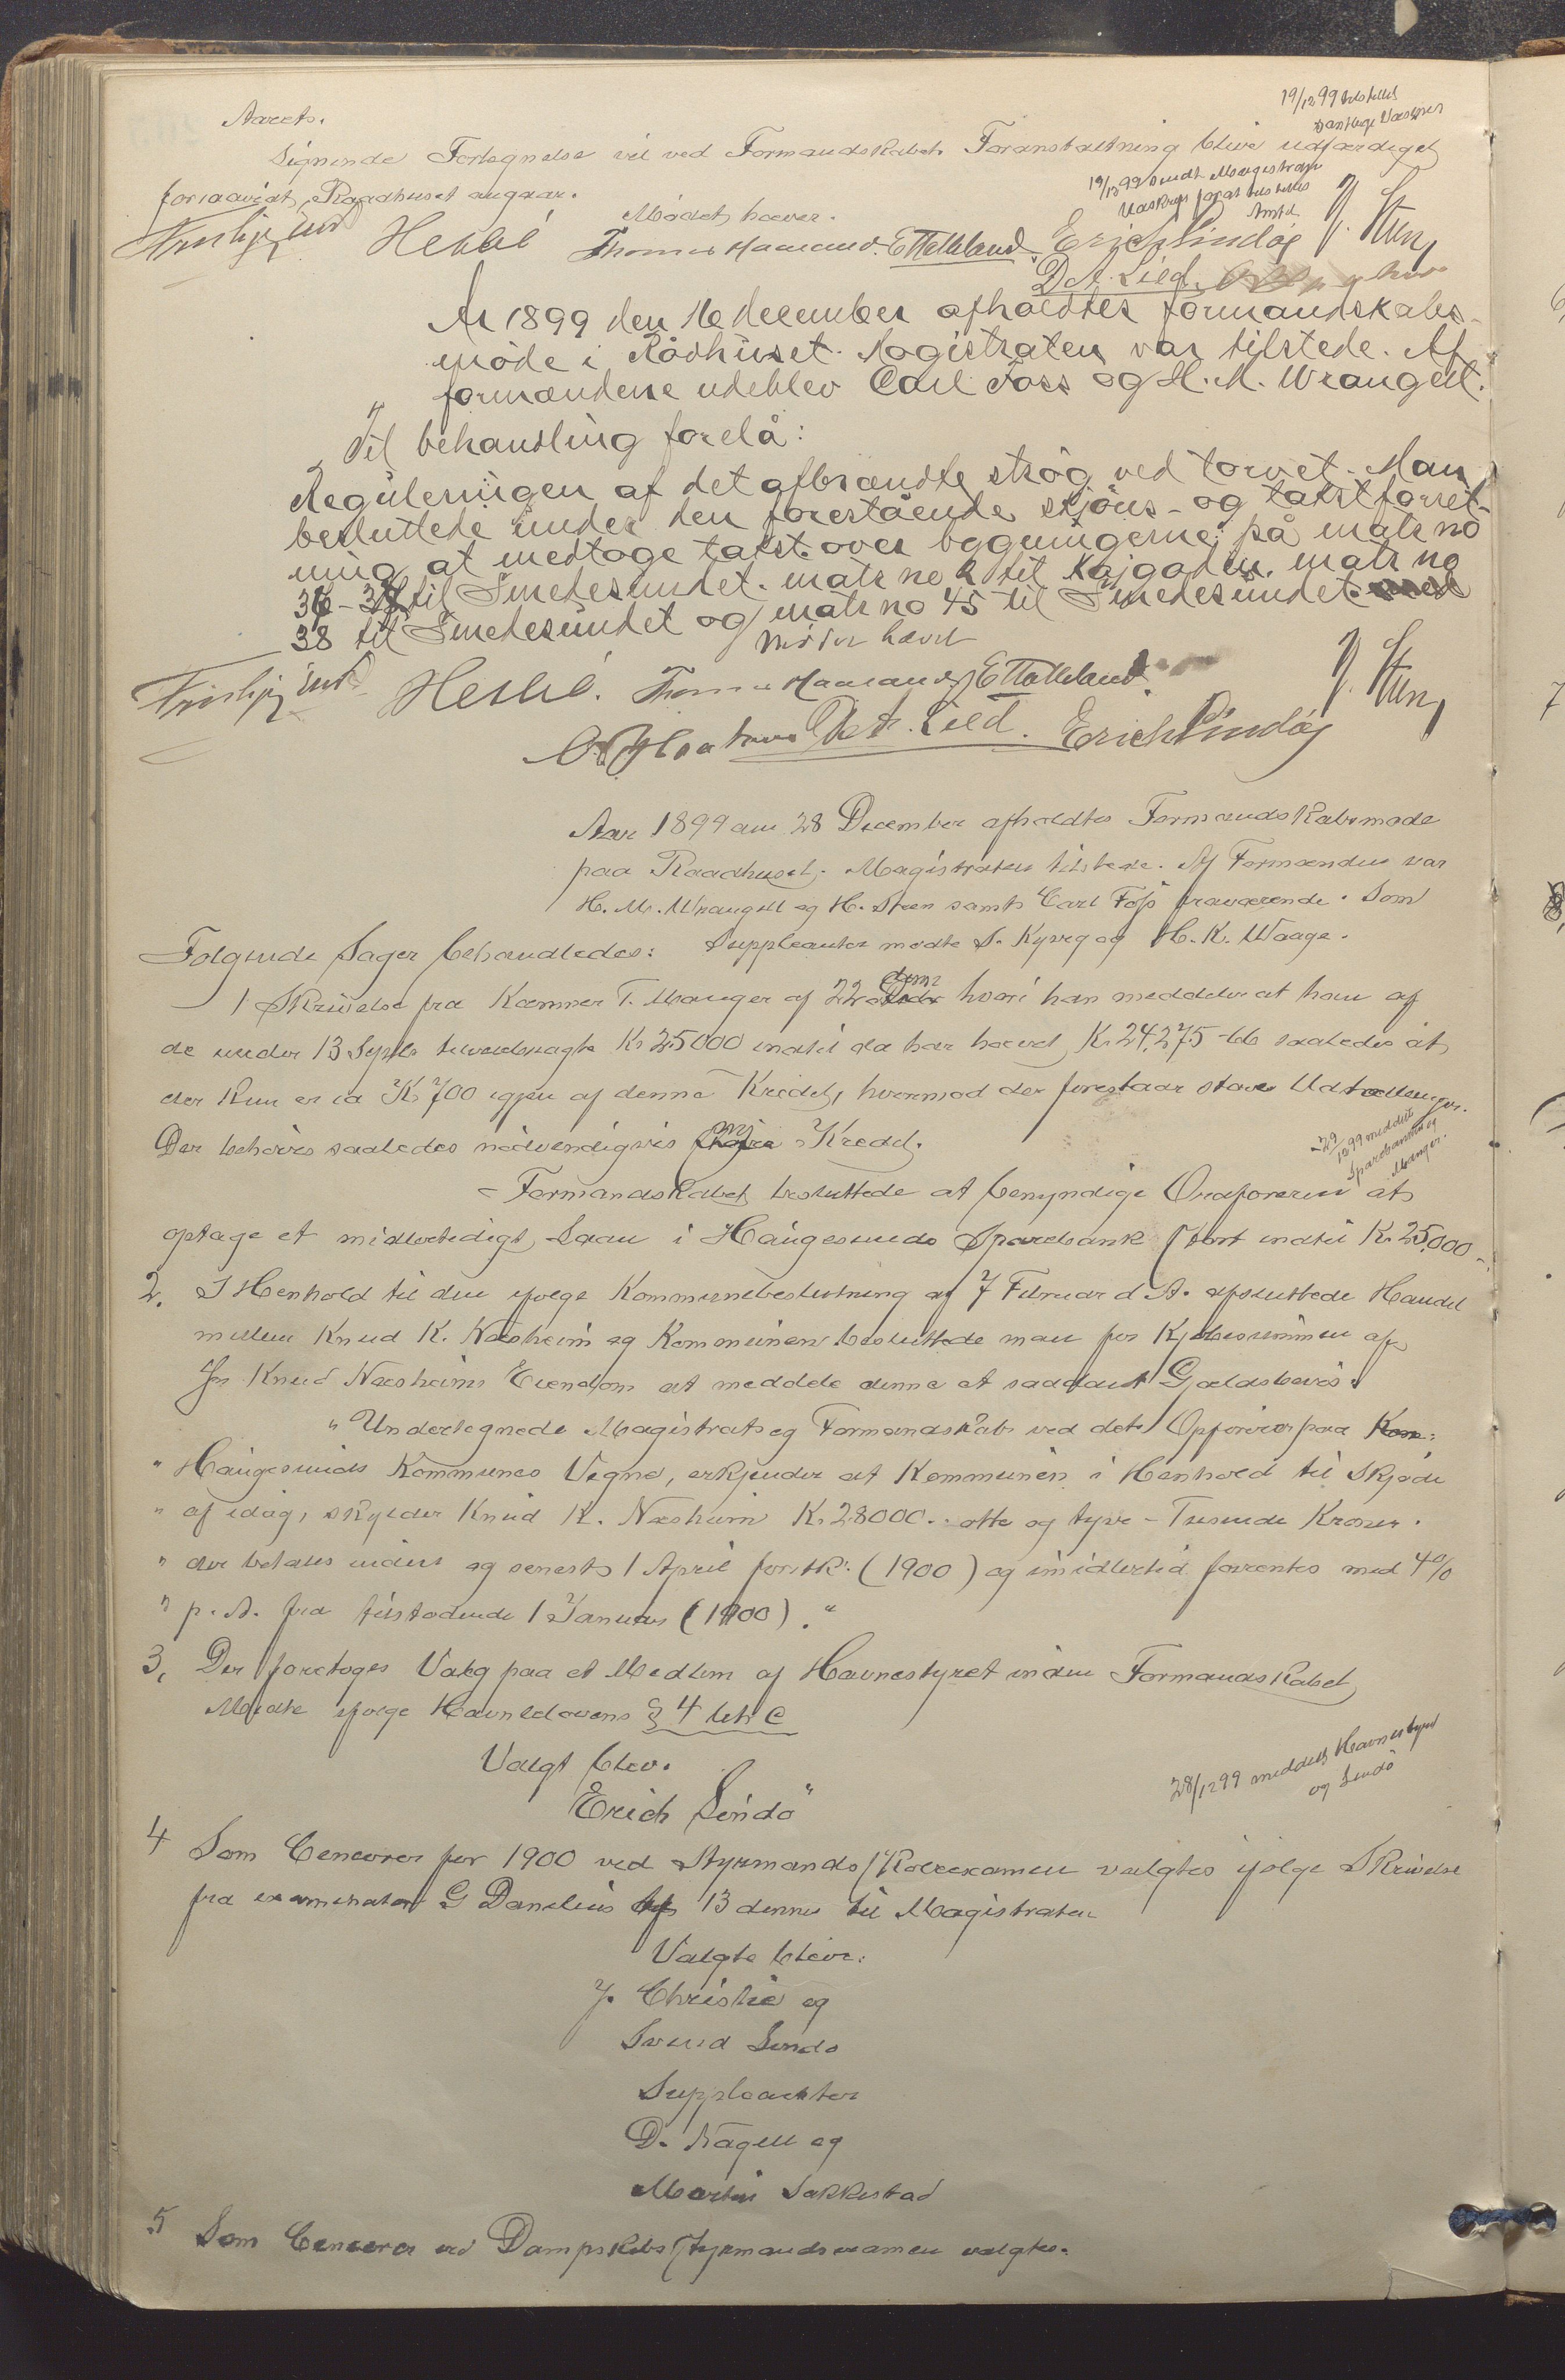 Aarets.
19/12 99 tilstillet
Lignende Fortegnelse vil ved Formandskabets Foranstaltning blive udfærdiget
forsaavidt Raadhuset angaar.
19/12 99 sendt Magistraten
Udskrift for at tilstilles
Amtet
Mødet hævet.
Heslie Thomas Haaland. E Tatleland. Erich Lindøy
D. A. Lied.
År 1899 den 16 december afholdtes formandskabs-
møde i Rådhuset. Magistraten var tilstede. Af
formændene udeblev Carl Foss og H. M. Wrangell.
Til behandling forelå:
Reguleringen af det afbrændte strøg ved torvet. Man
besluttede under den forestående skjøns- og takstforret-
ning at medtage takst over bygningerne på matr no
36-37 til Smedesundet. matr no 2 til Kajgaden. matr no
38 til Smedesundet og matr no 45 til Smedesundet.
Mødet hævet
Heslie. Thomas Haaland E Tatleland
D. A. Lied. Erich Lindøy
Aar 1899 den 28 December afholdtes Formandskabsmøde
paa Raadhuset. Magistraten tilstede. Af Formændene var
H. M. Wrangell og H. Steen samt Carl Foss fraværende. Som
Følgende Sager behandledes: Suppleanter mødte S. Kyvig og H. K. Waage.
1 Skrivelse fra Kæmner T. Manger af 22 dennes hvori han meddeler at han af
de under 13 Septb. tilveiebragte Kr 25000 indtil da har hævet Kr. 24,275-66 saaledes at
der kun er ca Kr 700 igjen af denne Kredit, hvormod der forestaar store Udtællinger.
Der behøves saaledes nødvendigvis ny Kredit.
29/12 99 meddelt
Sparebanken og
Manger.
Formandskabet besluttede at bemyndige Ordføreren at
optage et midlertidigt Laan i Haugesunds Sparebank stort indtil Kr. 25,000
2. I Henhold til den ifølge Kommunebeslutning af 7 Februar d. A. afsluttede Handel
mellem Knud K. Næsheim og Kommunen besluttede man for Kjøbesummen af
Knud Næsheims Eiendom at meddele denne et saadant Gjældsbevis.
"Undertegnede Magistrat og Formandskab ved dets Ordfører paa
" Haugesunds Kommunes Vegne, erkjender at Kommunen i Henhold til Skjøde
" af idag, skylder Knud K. Næsheim Kr. 28000.. otte og tyve - Tusinde Kroner.
" der betales inden og senest 1 April førstk. (1900) og imidlertid forrentes med 4%
" p. A. fra tilstødende 1 Januar (1900)."
3. Der foretoges Valg paa et Medlem af Havnestyret inden Formandskabet
Midte ifølge Havnelovens § 4 litr C
Valgt blev.
Erich Lindø
28/12 99 meddelt Havnestyret
og Lindø
4 Som Censorer for 1900 ved Styrmandsexamen valgtes ifølge Skrivelse
fra examinator G Danelius af 13 dennes til Magistraten
Valgte blev:
J. Christie og
Svend Lindø
Suppleanter
D. Nagell og
Martin Sakkestad
5 Som Censorer ved Dampskibs Styrmandsexamen valgtes.